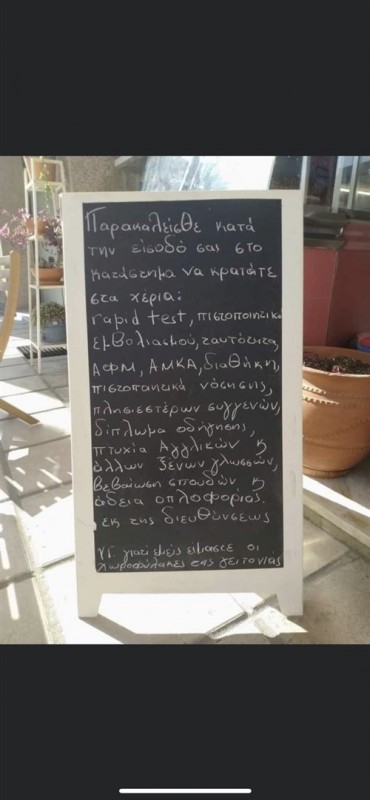 Παρακαλείσθε κατά
την είσοδό σας στο
κατάστημα να κρατάτε
στα χέρια:
rapid test, πιστοποιητικά
εμβολιασμού, ταυτότητα,
ΑΦΜ, ΑΜΚΑ, διαθήκη,
πιστοποιητικά νόσησης,
πλησιεστέρων συγγενών,
δίπλωμα οδήγησης,
πτυχία Αγγλικών &
άλλων ξένων γλωσσών,
βεβαίωση σπουδών &
άδεια οπλοφορίας.
εκ της διευθύνσεως
γιατί εμείς είμαστε οι
χωροφύλακες της γειτονιάς